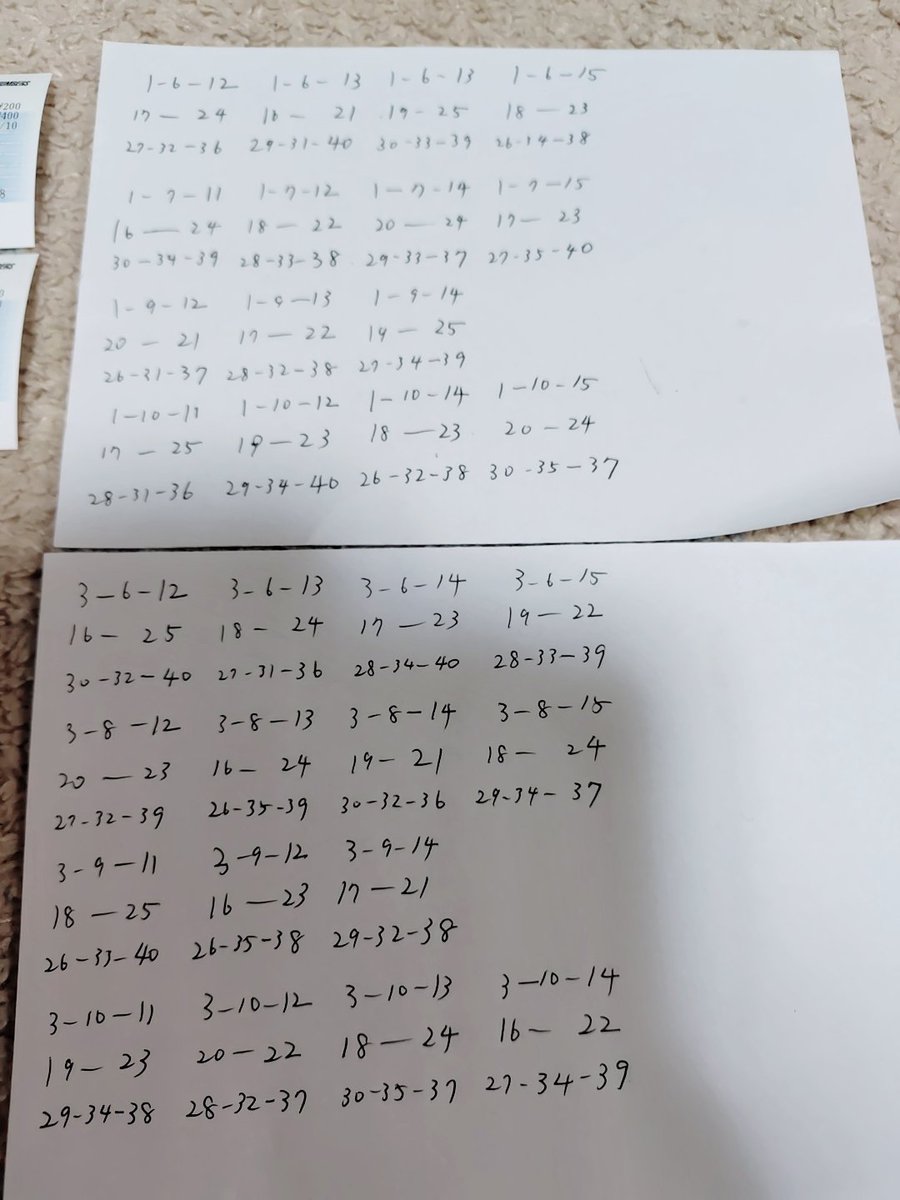 NUMBERS
¥200
¥400
/10
8
1-6-12 1-6-13 1-6-13 1-6-15
17 — 24 16 — 21 19-25 18 — 23
27-32-36 29-31-40 30-33-39 26-14-38
1-7-11 1-7-12 1-7-14 1-7-15
16 — 24 18 — 22 20 — 24 17 — 23
30-34-39 28-33-38 29-33-37 27-35-40
1-9-12 1-9-13 1-9-14
20 — 21 17 — 22 19 — 25
26-31-37 28-32-38 27-34-39
1-10-11 1-10-12 1-10-14 1-10-15
17 — 25 19-23 18 — 23 20 — 24
28-31-36 29-34-40 26-32-38 30-35-37
3-6-12 3-6-13 3-6-14 3-6-15
16 — 25 18 — 24 17 — 23 19 — 22
30-32-40 27-31-36 28-34-40 28-33-39
3-8-12 3-8-13 3-8-14 3-8-15
20 — 23 16 — 24 19 — 21 18 — 24
27-32-39 26-35-39 30-32-36 29-34-37
3-9-11 3-9-12 3-9-14
18 — 25 16 — 23 17 — 21
26-33-40 26-35-38 29-32-38
3-10-11 3-10-12 3-10-13 3-10-14
19 — 23 20 — 22 18 — 24 16 — 22
29-34-38 28-32-37 30-35-37 27-34-39